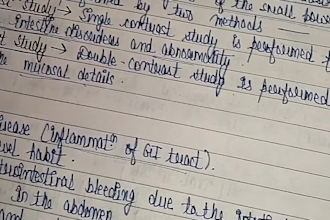 by two methods
of the small bowel
Study → Single contrast study is performed
intestine disorders and abnormality
Study → Double-contrast study is performed
mucosal details.
(inflammatⁿ of GIT tract).
habit.
bleeding due to the
in the abdomen
and